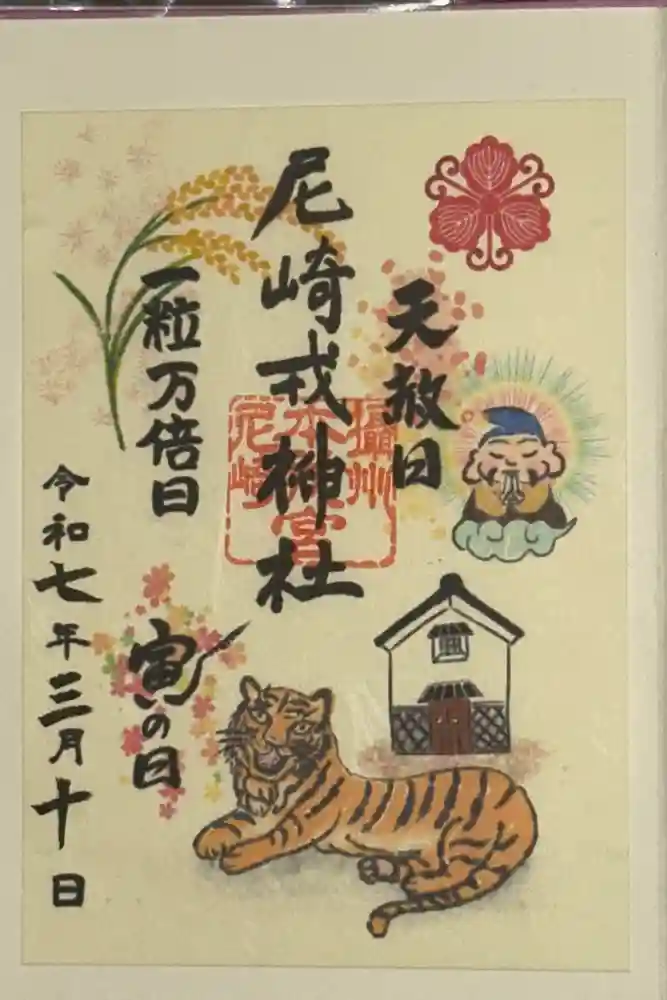 天赦日
尼崎戎神社
攝州
本宮
尼崎
一粒万倍日
寅の日
令和七年三月十日